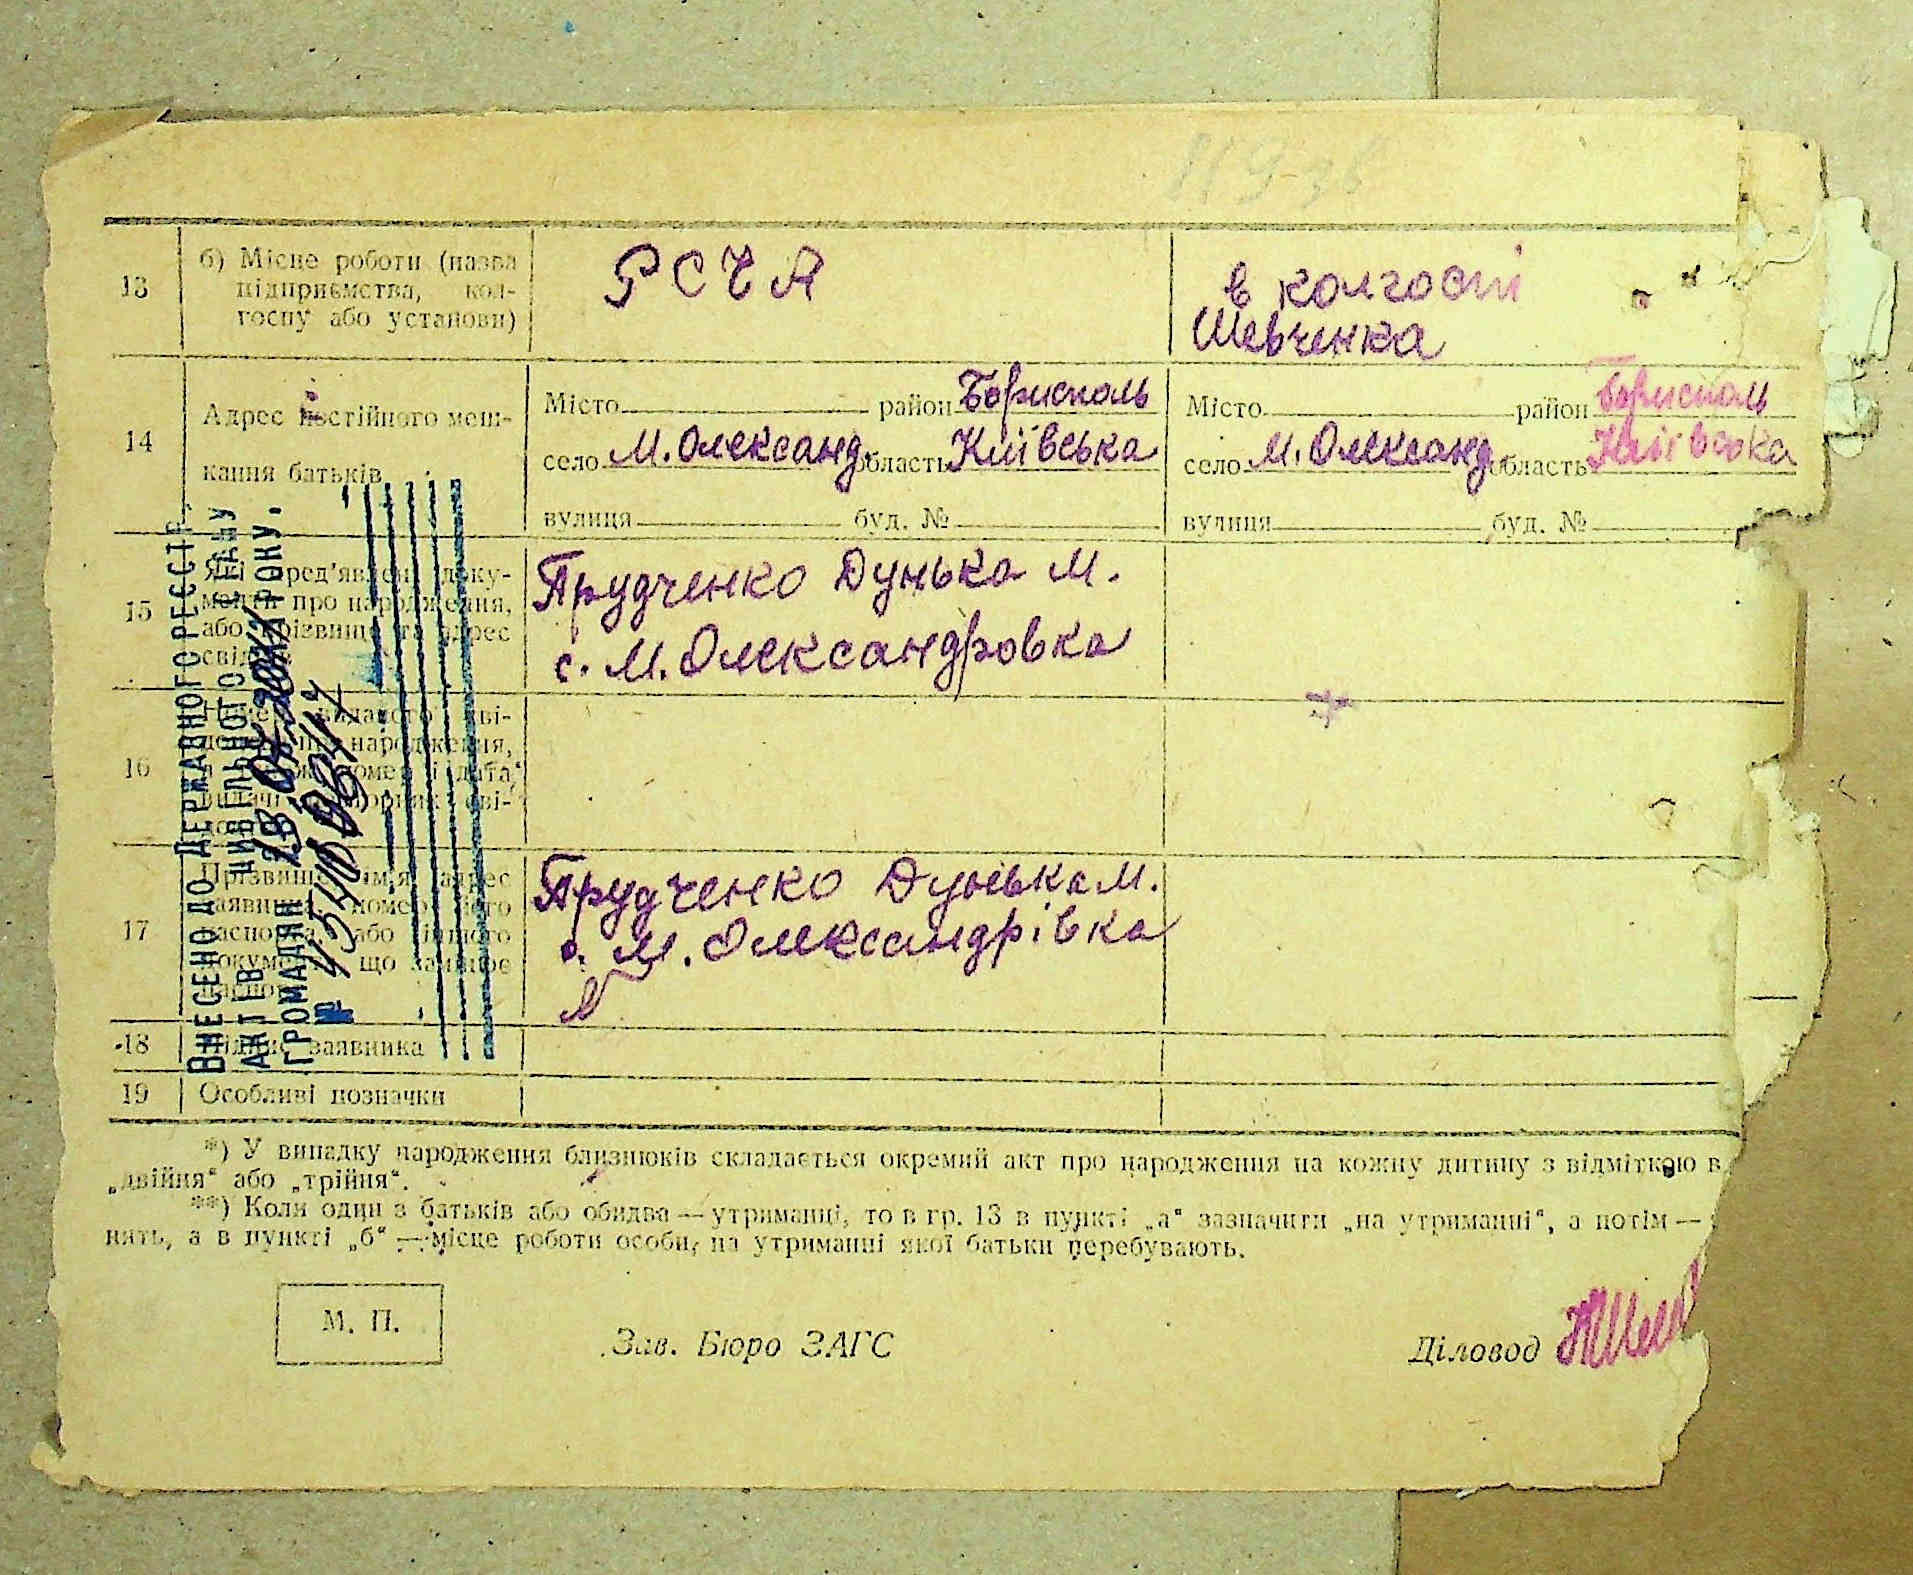 13
б) Місце роботи (назва
підприємства, кол-
госпу або установи)
РСЧА
в колгоспі
Шевченка
14
Адрес постійного меш-
кання батьків
Місто район Борисполь
село М. Олександ. область Київська
вулиця буд. №
Місто район Борисполь
село М. Олександ. область Київська
вулиця буд. №
15
Які пред'явлені доку-
менти про народження,
або прізвище та адрес
свідків
Прудченко Дунька М.
с. М. Олександровка
16
Номер виданого сві-
доцтва про народження,
номер і дата
видачі сві-
17
Прізвище, ім'я, адрес
заявника, номер його
паспорта, або іншого
документа, що замінює
паспорт
Прудченко Дунька М.
с. М. Олександрівка
18
Підпис заявника
19
Особливі позначки
ВНЕСЕНО ДО ДЕРЖАВНОГО РЕЄСТР
АКТІВ ЦИВІЛЬНОГО СТАНУ
ГРОМАДЯН РОКУ.
№
*) У випадку народження близнюків складається окремий акт про народження на кожну дитину з відміткою в
„двійня“ або „трійня“.
**) Коли один з батьків або обидва — утриманці, то в гр. 13 в пункті „а“ зазначити „на утриманні“, а потім —
нять, а в пункті „б“ — місце роботи особи, на утриманні якої батьки перебувають.
М. П.
Зав. Бюро ЗАГС
Діловод